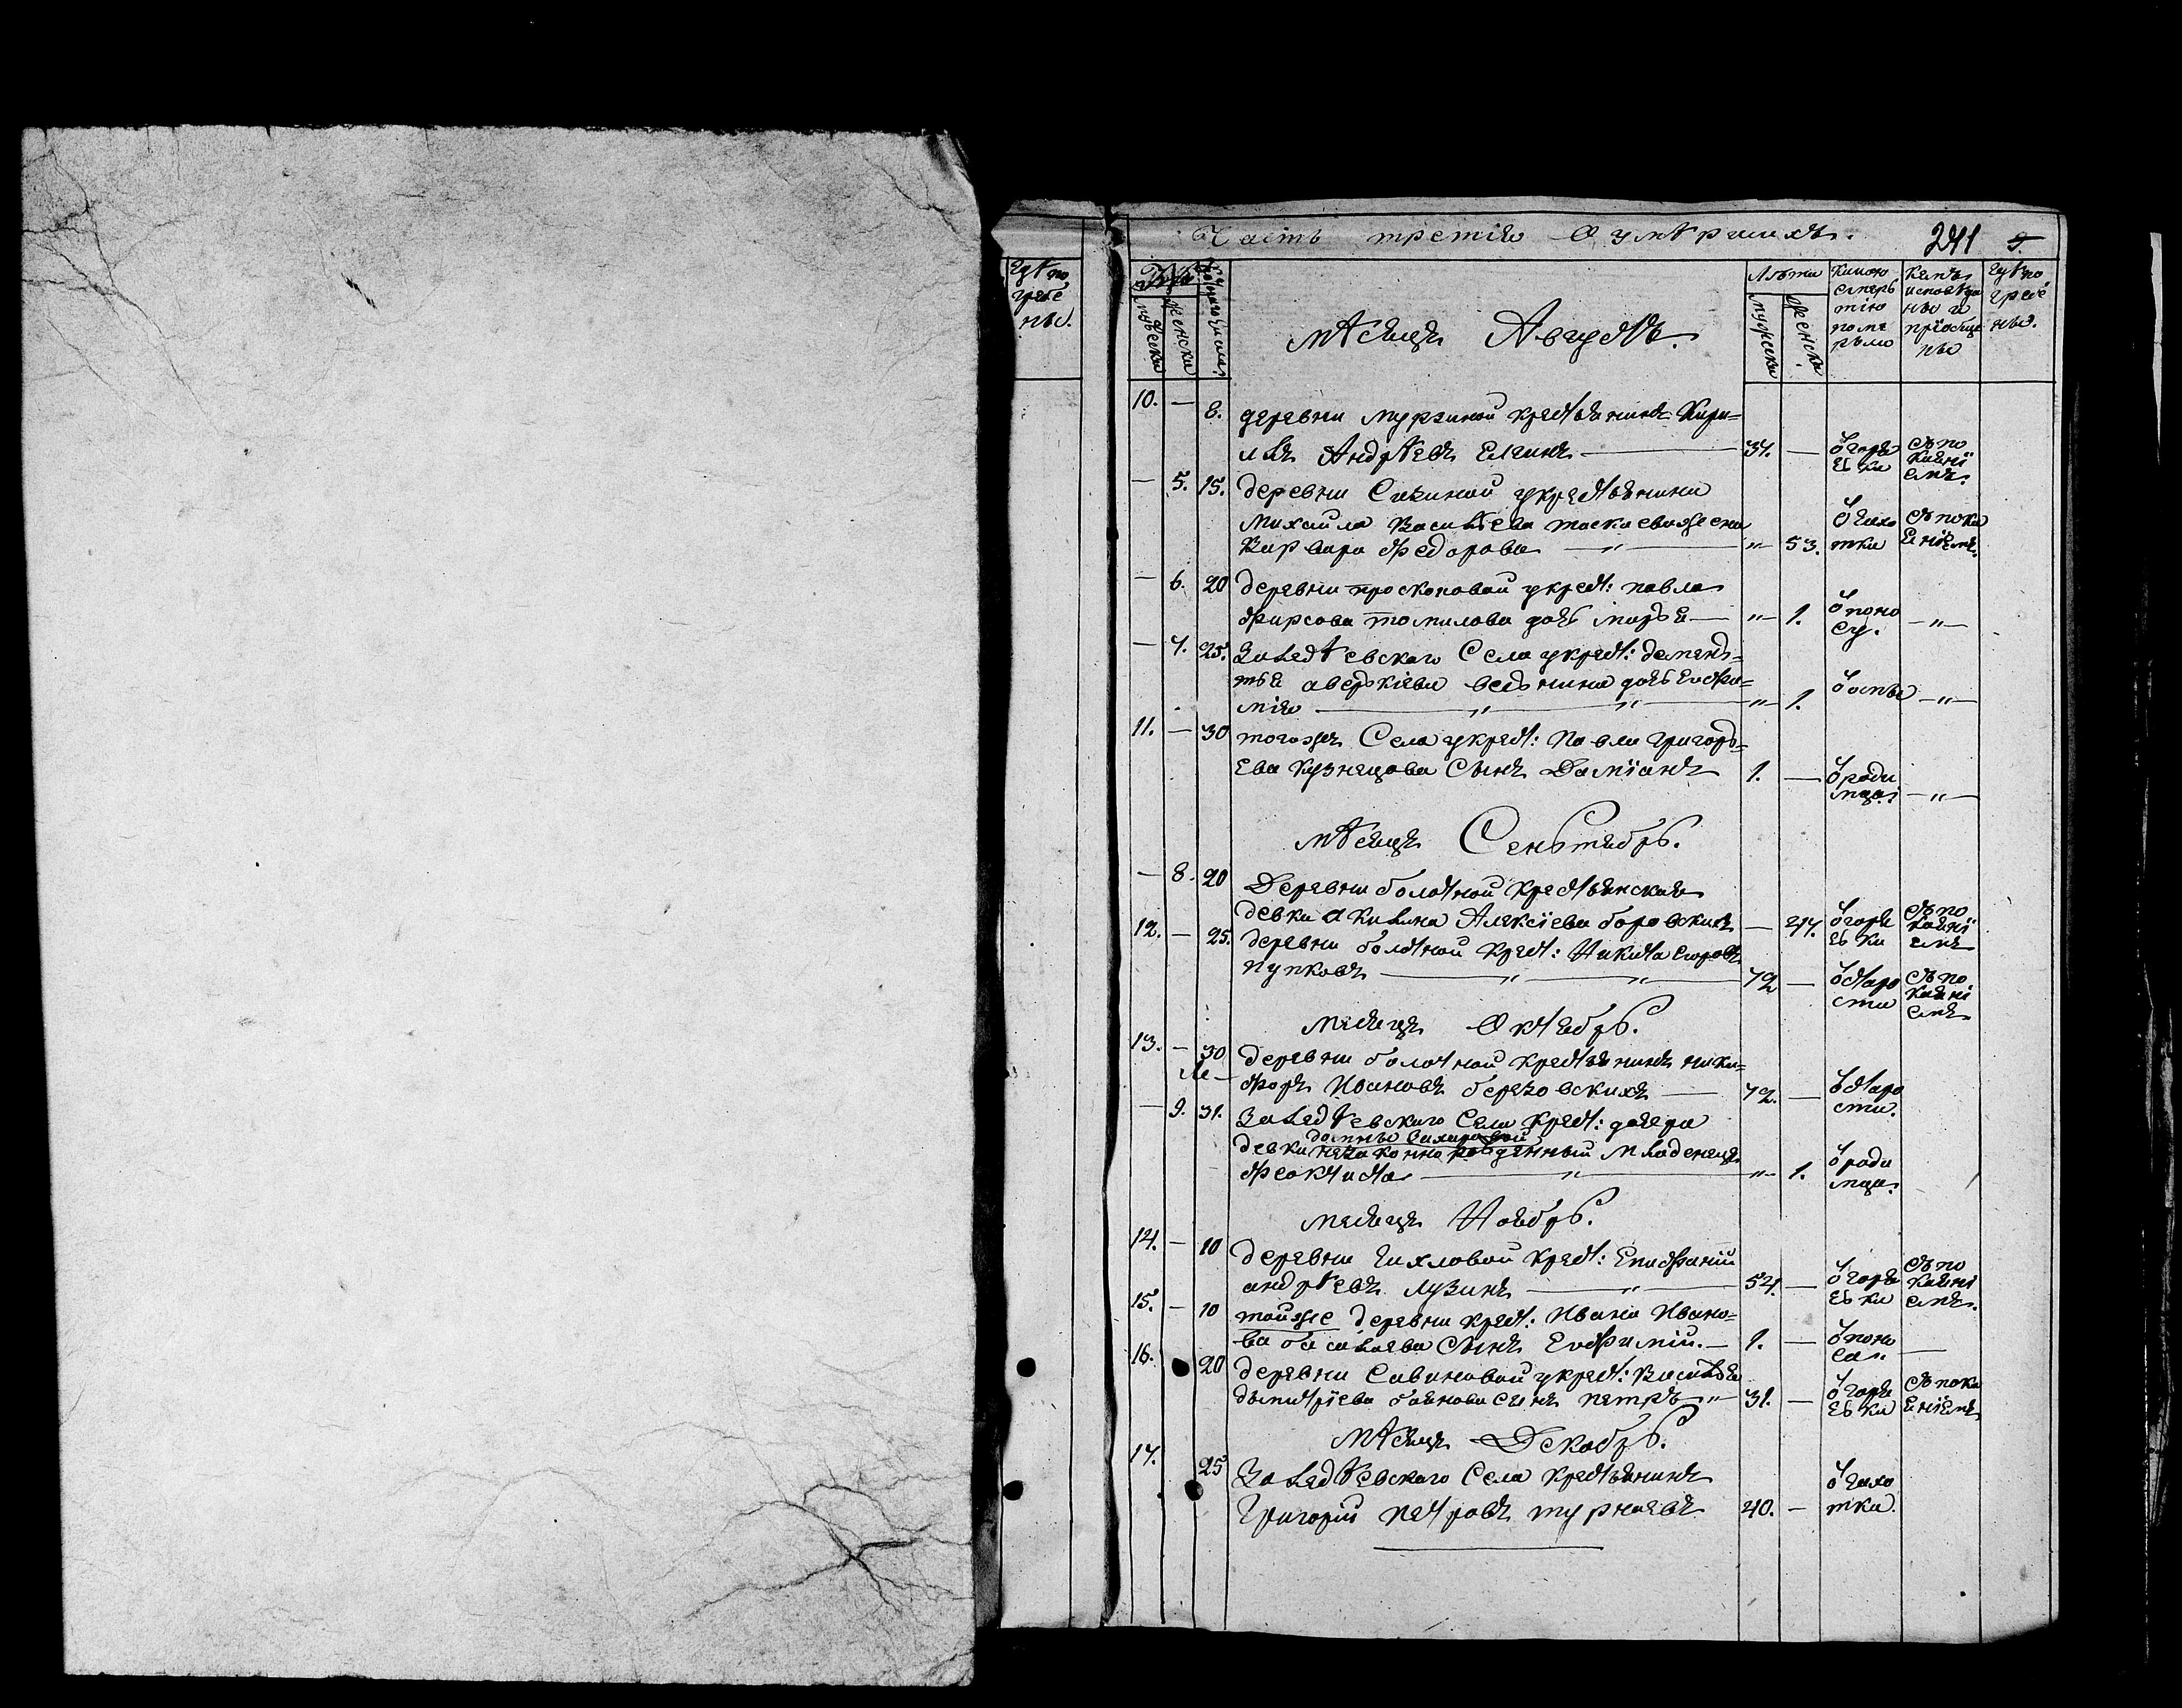 Часть третія О умѣршихъ. 241
гдѣ по
гребе
ны.
№
мужеска
женска
Лѣта
мужеска
женска
какою
смерь
тію
поме
рьло
кемъ
исповѣда
ны и
пріобще
ны
гдѣ по
гребе
ны.
мѣсяцъ Августъ.
10. — 8. деревни Мурзиной крестьянинъ Кири=
илъ Андрѣевъ Елкинъ — 37. — ѿ горя
чьки
съ по
каяні
емъ.
— 5. 15. деревни Сизиной у крестьянина
Михаила Васильева жена
Варвара Федорова — „ — „ 53. ѿ чахо
тки
съ пока
яніемъ.
— 6. 20 деревни просконовой у крест: павла
Фирсова томилова дочь марья — „ — 1. ѿ поно
су. — „ —
— 7. 25. Заледѣевскаго Села у крест: дементь=
тья аверькіева ведьнина дочь Евфи=
мія — „ — „ — „ — 1. ѿ оспы — „ —
11. — 30 тогожъ Села у крест: Павла Григорь=
ева Кузнецова Сынъ Даміанъ 1. — ѿ роди
мца. — „ —
мѣсяцъ Сеньтябрь.
— 8. 20 Деревни болотной крестьянская
девка акилина Алексіева боровскихъ — 27. ѿ горя
чь ки
съ по
каяні
емъ
12. — 25. деревни болотной крест: Никита Егоровъ
пупковъ — „ — „ — 72 — ѿ старо
сти
съ по
каяні
емъ
месяцъ Октябрь.
13. — 30 деревни болотной крестьянинъ ники=
форъ Ивановъ березовскихъ — 72. — ѿ старо
сти.
— 9. 31. Заледѣевскаго Села крест: дочери
девки незаконно рожденный младенецъ
Феоктиста — „ — „ — 1. ѿ роди
мца.
месяцъ Ноябрь.
14. — 10 деревни Чихловой крест: Епифаній
андрѣевъ Лузинъ — „ — 54. — ѿ горя
чь ки
съ по
каяні
емъ.
15. — 10 тойже деревни крест: Ивана Ивано=
ва Сынъ Евфимій. — 1. — ѿ поно
са. —
16. 20 деревни Савиновой у крест: Василья
дьмитріева баянова сынъ петръ — „ 31. — ѿ горя
чь ки
съ пока
яніемъ
мѣсяцъ Декабрь.
17. 25 Заледѣевскаго Села крестьянинъ
Григорій петровъ турнаевъ 40. — ѿ чахо
тки.